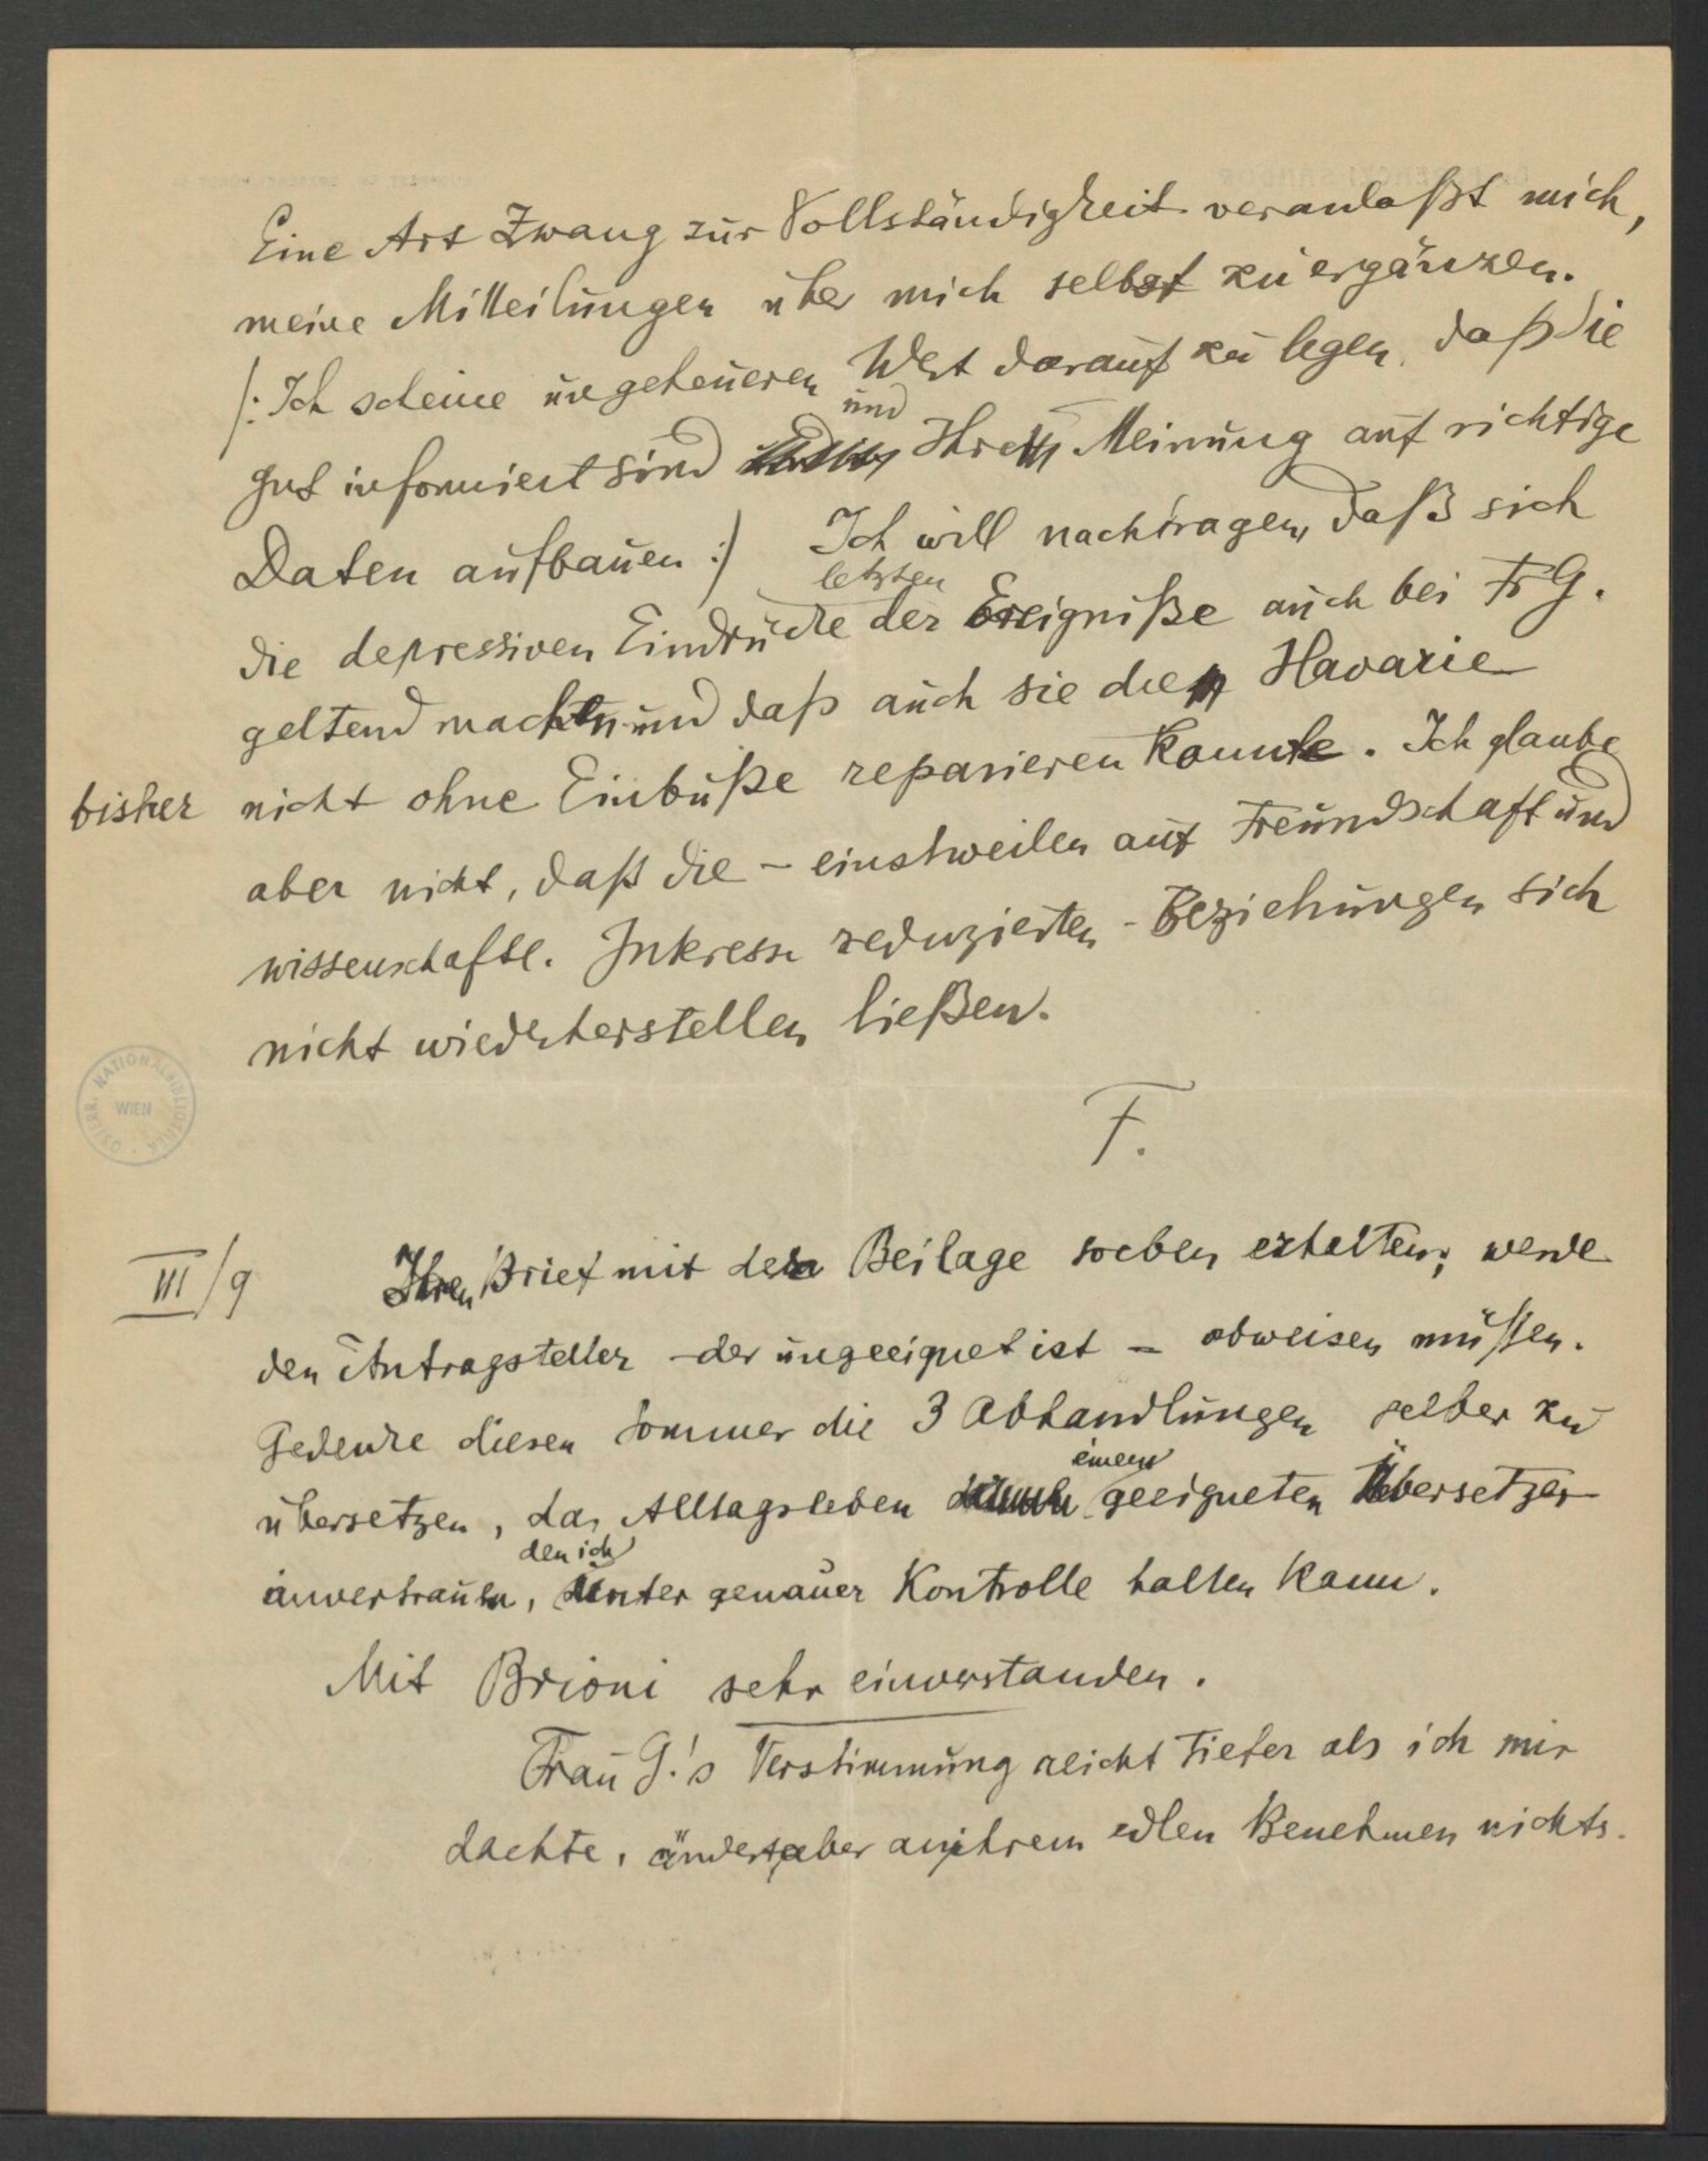 Eine Art Zwang zur Vollständigkeit veranlaßt mich,
meine Mitteilungen über mich selbst zu ergänzen.
/: Ich scheine ungeheueren Wert darauf zu legen, daß Sie
und
gut informiert sind Ihre Meinung auf richtige
Daten aufbauen :/ Ich will nachtragen, daß sich
letzten
die depressiven Eindrücke der Ereigniße auch bei Fr G.
geltend machten und daß auch sie die Havarie
bisher nicht ohne Einbuße reparieren konnte. Ich glaube
aber nicht, daß die – einstweilen auf Freundschaft und
wissenschaftl. Interesse reduzierten – Beziehungen sich
nicht wiederherstellen ließen.
F.
ÖSTERR. NATIONALBIBLIOTHEK
WIEN
III/9 Ihren Brief mit der Beilage soeben erhalten; werde
den Antragsteller – der ungeeignet ist – abweisen müssen.
Gedenke diesen Sommer die 3 Abhandlungen selber zu
einem
übersetzen, das Alltagsleben geeigneten Übersetzer
den ich
anvertrauen, unter genauer Kontrolle halten kann.
Mit Brioni sehr einverstanden.
Frau G.'s Verstimmung reicht tiefer als ich mir
dachte, ändert aber an ihrem edlen Benehmen nichts.